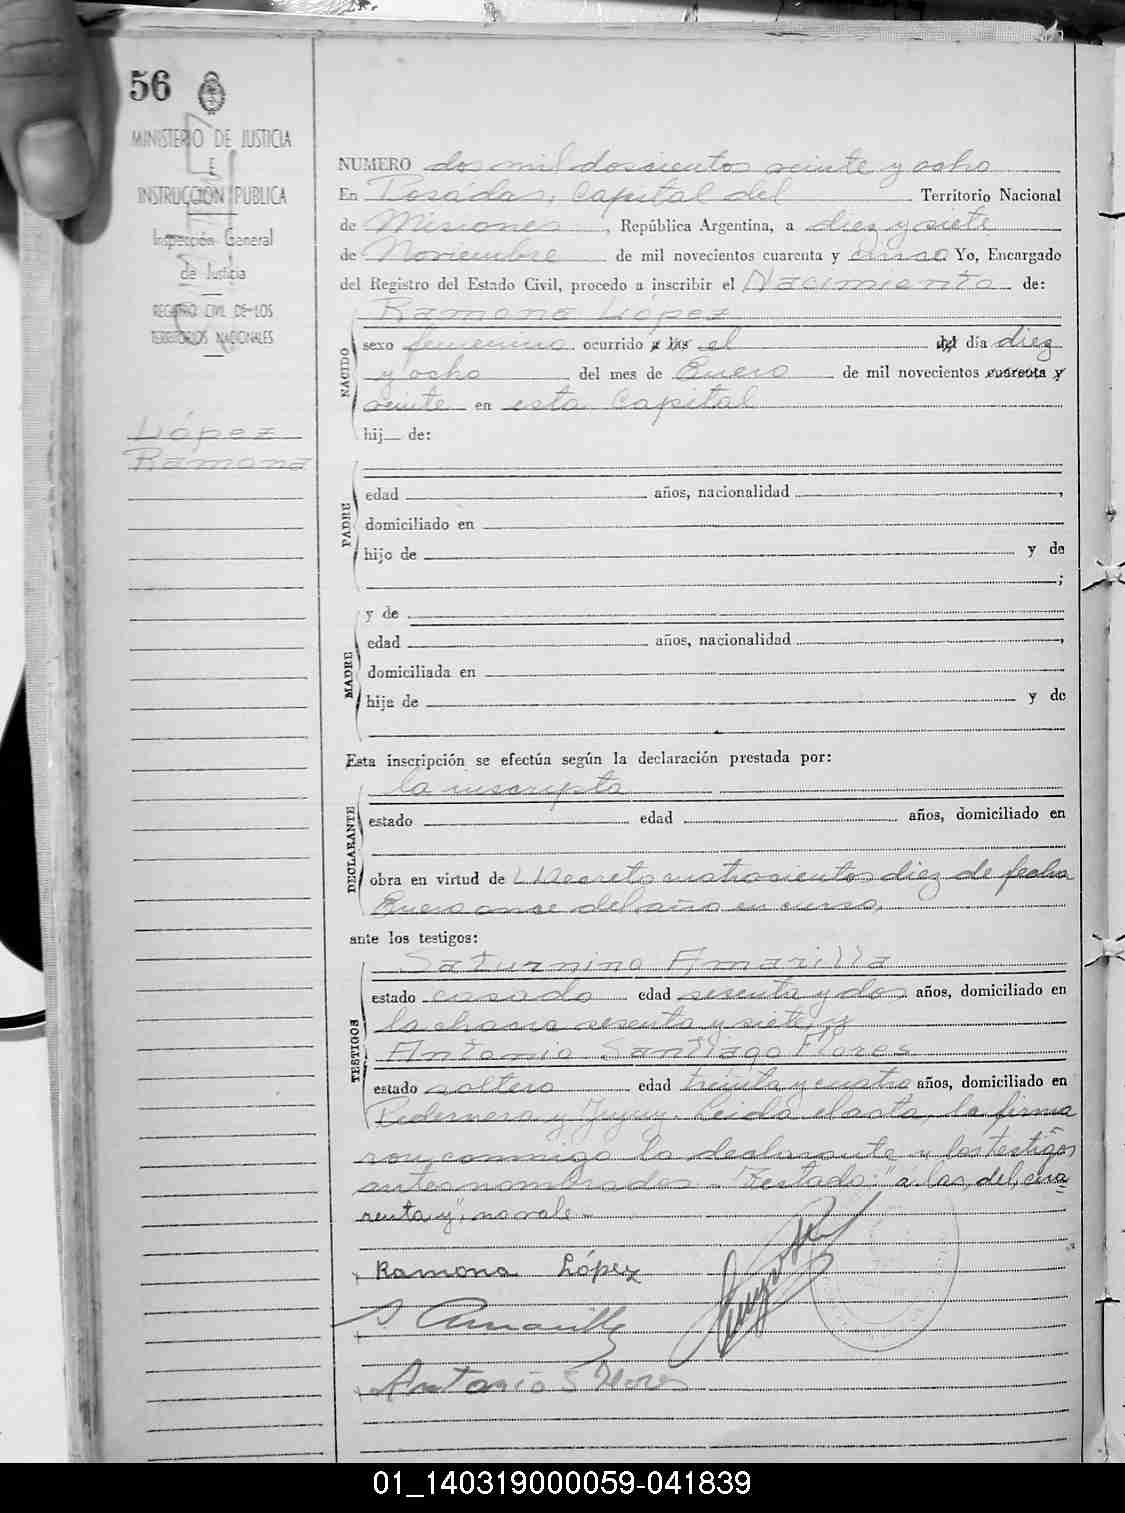 56
MINISTERIO DE JUSTICIA
E
INSTRUCCIÓN PUBLICA
Inspección General
de Justicia
REGISTRO CIVIL DE LOS
TERRITORIOS NACIONALES
López
Ramona
NUMERO dos mil doscientos veinte y ocho
En Posadas, Capital del Territorio Nacional
de Misiones, República Argentina, a diez y siete
de Noviembre de mil novecientos cuarenta y cinco Yo, Encargado
del Registro del Estado Civil, procedo a inscribir el Nacimiento de:
NACIDO
Ramona López
sexo femenino ocurrido a las el del día diez
y ocho del mes de Enero de mil novecientos cuarenta y
veinte en esta Capital
hij de:
PADRE
edad años, nacionalidad ,
domiciliado en
hijo de y de
;
y de
MADRE
edad años, nacionalidad ,
domiciliada en
hija de y de
Esta inscripción se efectúa según la declaración prestada por:
DECLARANTE
la inscripta
estado edad años, domiciliado en
obra en virtud de Decreto cuatrocientos diez de fecha
Enero once del año en curso,
ante los testigos:
TESTIGOS
Saturnino Amarilla
estado casado edad sesenta y dos años, domiciliado en
la chacra sesenta y siete, y
Antonio Santiago Flores
estado soltero edad treinta y cuatro años, domiciliado en
Pedernera y Jujuy. Leida el acta, la firma
ron conmigo la declarante y los testigos
antes nombrados - Testado: "a las, del, cua=
renta y", no vale -
Ramona López
S Amarilla
Antonio S Flores
01_140319000059-041839